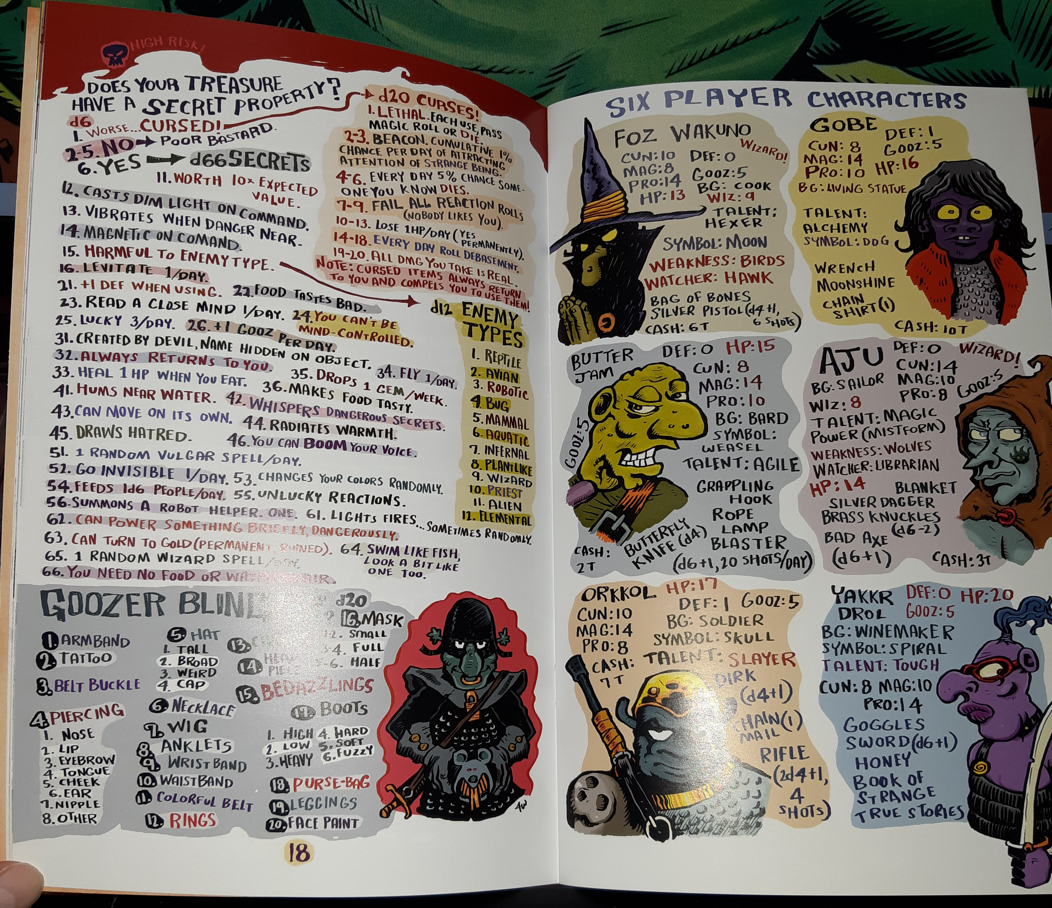 HIGH RISK!
DOES YOUR TREASURE
HAVE A SECRET PROPERTY?
d6
1. WORSE...CURSED!
2-5. NO → POOR BASTARD.
6. YES → d66 SECRETS
11. WORTH 10x EXPECTED
VALUE.
12. CASTS DIM LIGHT ON COMMAND.
13. VIBRATES WHEN DANGER NEAR.
14. MAGNETIC ON COMAND.
15. HARMFUL TO ENEMY TYPE.
16. LEVITATE 1/DAY.
21. +1 DEF WHEN USING. 22. FOOD TASTES BAD.
23. READ A CLOSE MIND 1/DAY. 24. YOU CAN'T BE
MIND-CONTROLLED.
25. LUCKY 3/DAY. 26. +1 GOOZ PER DAY.
31. CREATED BY DEVIL, NAME HIDDEN ON OBJECT.
32. ALWAYS RETURNS TO YOU. 34. FLY 1/DAY.
33. HEAL 1 HP WHEN YOU EAT. 35. DROPS 1 GEM/WEEK.
36. MAKES FOOD TASTY.
41. HUMS NEAR WATER. 42. WHISPERS DANGEROUS SECRETS.
43. CAN MOVE ON ITS OWN. 44. RADIATES WARMTH.
45. DRAWS HATRED. 46. YOU CAN BOOM YOUR VOICE.
51. 1 RANDOM VULGAR SPELL/DAY.
52. GO INVISIBLE 1/DAY. 53. CHANGES YOUR COLORS RANDOMLY.
54. FEEDS 1d6 PEOPLE/DAY. 55. UNLUCKY REACTIONS.
56. SUMMONS A ROBOT HELPER. ONE. 61. LIGHTS FIRES...SOMETIMES RANDOMLY.
62. CAN POWER SOMETHING BRIEFLY, DANGEROUSLY.
63. CAN TURN TO GOLD (PERMANENT, RUINED). 64. SWIM LIKE FISH,
LOOK A BIT LIKE
ONE TOO.
65. 1 RANDOM WIZARD SPELL/DAY.
66. YOU NEED NO FOOD OR
d20 CURSES!
1. LETHAL. EACH USE, PASS
MAGIC ROLL OR DIE.
2-3. BEACON. CUMULATIVE 1%
CHANCE PER DAY OF ATTRACTING
ATTENTION OF STRANGE BEING.
4-6. EVERY DAY 5% CHANCE SOME-
ONE YOU KNOW DIES.
7-9. FAIL ALL REACTION ROLLS
(NOBODY LIKES YOU).
10-13. LOSE 1HP/DAY (YES
PERMANENTLY).
14-18. EVERY DAY ROLL DEBASEMENT.
19-20. ALL DMG YOU TAKE IS REAL.
NOTE: CURSED ITEMS ALWAYS RETURN
TO YOU AND COMPELS YOU TO USE THEM!
d12 ENEMY
TYPES
1. REPTILE
2. AVIAN
3. ROBOTIC
4. BUG
5. MAMMAL
6. AQUATIC
7. INFERNAL
8. PLANTLIKE
9. WIZARD
10. PRIEST
11. ALIEN
12. ELEMENTAL
GOOZER BLING d20
1. ARMBAND
2. TATTOO
3. BELT BUCKLE
4. PIERCING
1. NOSE
2. LIP
3. EYEBROW
4. TONGUE
5. CHEEK
6. EAR
7. NIPPLE
8. OTHER
5. HAT
1. TALL
2. BROAD
3. WEIRD
4. CAP
6. NECKLACE
7. WIG
8. ANKLETS
9. WRISTBAND
10. WAISTBAND
11. COLORFUL BELT
12. RINGS
13.
14. HEAD
PIECE
15. BEDAZZLINGS
16. MASK
1-2. SMALL
3-4. FULL
5-6. HALF
17. BOOTS
1. HIGH 4. HARD
2. LOW 5. SOFT
3. HEAVY 6. FUZZY
18. PURSE-BAG
19. LEGGINGS
20. FACE PAINT
18
SIX PLAYER CHARACTERS
FOZ WAKUNO
WIZARD!
CUN:10 DEF:0
MAG:8
PRO:14 BG: COOK
HP:13 WIZ:9
TALENT:
HEXER
SYMBOL: MOON
WEAKNESS: BIRDS
WATCHER: HAWK
BAG OF BONES
SILVER PISTOL (d4+1,
6 SHOTS)
CASH: 6T
GOBE
DEF: 1
CUN: 8 GOOZ:5
MAG:14
PRO:10 HP:16
BG: LIVING STATUE
TALENT:
ALCHEMY
SYMBOL: DOG
WRENCH
MOONSHINE
CHAIN
SHIRT (1)
CASH: 10T
BUTTER
JAM
DEF:0 HP:15
CUN: 8
MAG:14
PRO:10
GOOZ:5
BG: BARD
SYMBOL:
WEASEL
TALENT: AGILE
GRAPPLING
HOOK
ROPE
LAMP
BLASTER
(d6+1, 20 SHOTS/DAY)
BUTTERFLY
KNIFE (d4)
CASH:
2T
AJU
DEF:0 WIZARD!
BG: SAILOR CUN:14
WIZ: 8 MAG:10
PRO:8 GOOZ:5
TALENT: MAGIC
POWER (MISTFORM)
WEAKNESS: WOLVES
WATCHER: LIBRARIAN
HP:14 BLANKET
SILVER DAGGER
BRASS KNUCKLES
(d6-2)
BAD AXE
(d6+1) CASH:3T
ORKKOL HP:17
CUN:10 DEF:1 GOOZ:5
MAG:14 BG: SOLDIER
PRO:8 SYMBOL: SKULL
CASH: TALENT: SLAYER
7T
DIRK
(d4+1)
CHAIN (1)
MAIL
RIFLE
(2d4+1,
4
SHOTS)
YAKKR DEF:0 HP:20
DROL GOOZ:5
BG: WINEMAKER
SYMBOL: SPIRAL
TALENT: TOUGH
CUN: 8 MAG:10
PRO:14
GOGGLES
SWORD (d6+1)
HONEY
BOOK OF
STRANGE
TRUE STORIES